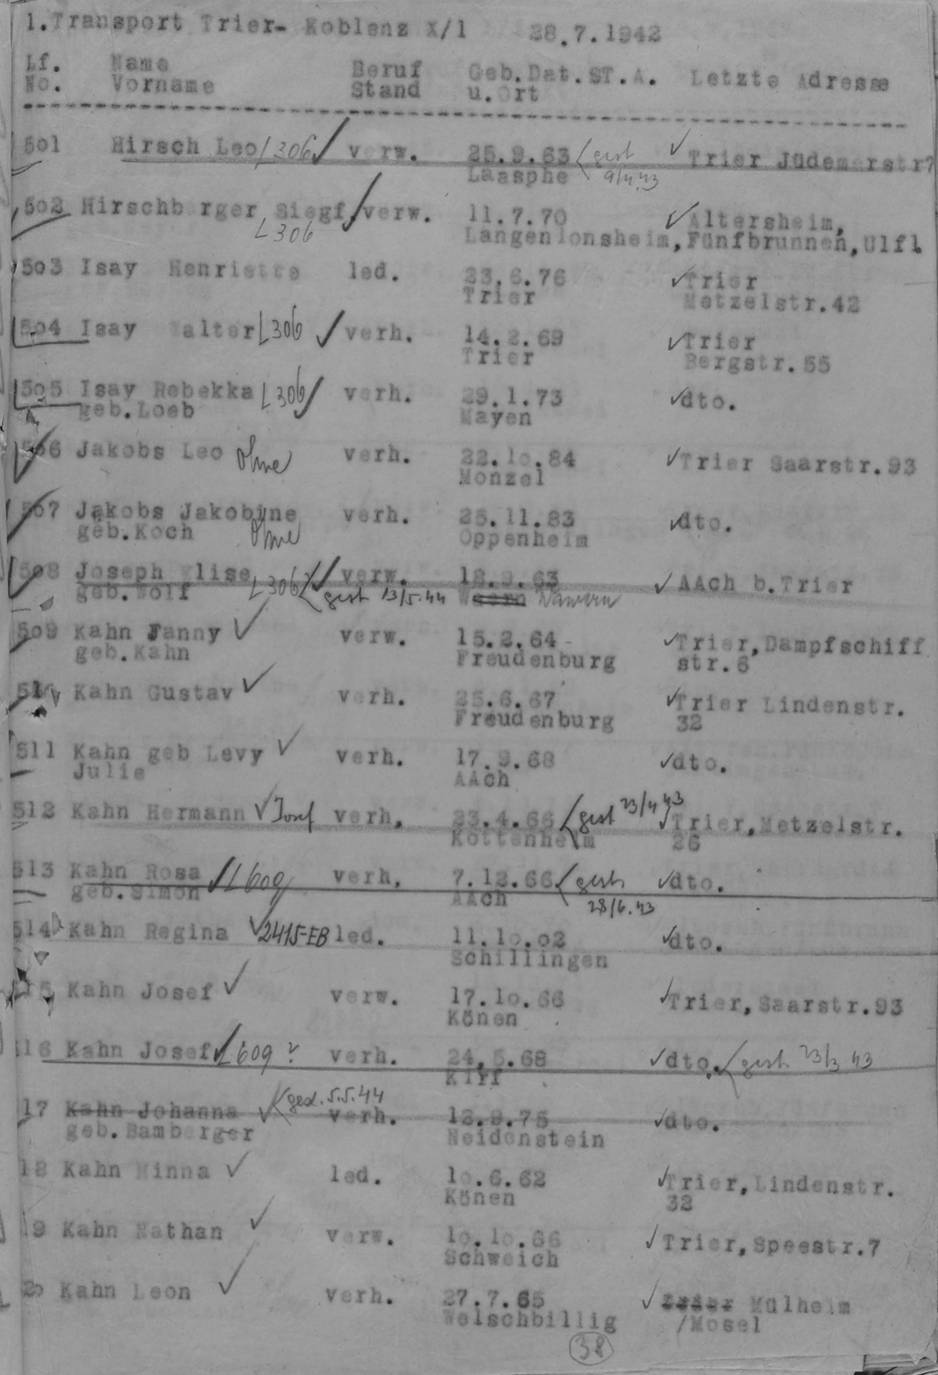 1.Transport Trier- Koblenz X/1 28.7.1942
Lf. Name Beruf Geb.Dat.ST.A. Letzte Adresse
No. Vorname Stand u.Ort
501 Hirsch Leo L306 verw. 25.9.63 gest Trier Jüdemerstr7
Laasphe 9/4.43
502 Hirschberger Siegf. verw. 11.7.70 Altersheim,
L306 Langenlonsheim, Fünfbrunnen, Ulfl
503 Isay Henriette led. 23.6.76 Trier
Trier Metzelstr.42
504 Isay Walter L306 verh. 14.2.69 Trier
Trier Bergstr.55
505 Isay Rebekka L306 verh. 29.1.73 dto.
geb.Loeb Mayen
506 Jakobs Leo Ohne verh. 22.10.84 Trier Saarstr.93
Monzel
507 Jakobs Jakobine verh. 25.11.83 dto.
geb.Koch Ohne Oppenheim
508 Joseph Elise L306 verw. 18.9.63 AAch b.Trier
geb.Wolf gest 13/5.44 Wawern
509 Kahn Fanny verw. 15.2.64 Trier, Dampfschiff
geb.Kahn Freudenburg str.6
510 Kahn Gustav verh. 25.6.67 Trier Lindenstr.
Freudenburg 32
511 Kahn geb Levy verh. 17.9.68 dto.
Julie AAch
512 Kahn Hermann Josef verh. 23.4.66 gest 23/4 43 Trier, Metzelstr.
Kottenheim 26
513 Kahn Rosa L609 verh. 7.12.66 gest dto.
geb.Simon AAch 28/6.43
514 Kahn Regina 2415-EB led. 11.10.02 dto.
Schillingen
515 Kahn Josef verw. 17.10.66 Trier, Saarstr.93
Könen
16 Kahn Josef L609? verh. 24.5.68 dto. gest 23/3 43
Kirf
17 Kahn Johanna gest. 5.5.44 verh. 12.9.75 dto.
geb.Bamberger Neidenstein
18 Kahn Minna led. 10.6.62 Trier, Lindenstr.
Könen 32
19 Kahn Nathan verw. 10.10.66 Trier, Speestr.7
Schweich
20 Kahn Leon verh. 27.7.65 Trier Mülheim
Welschbillig /Mosel
38